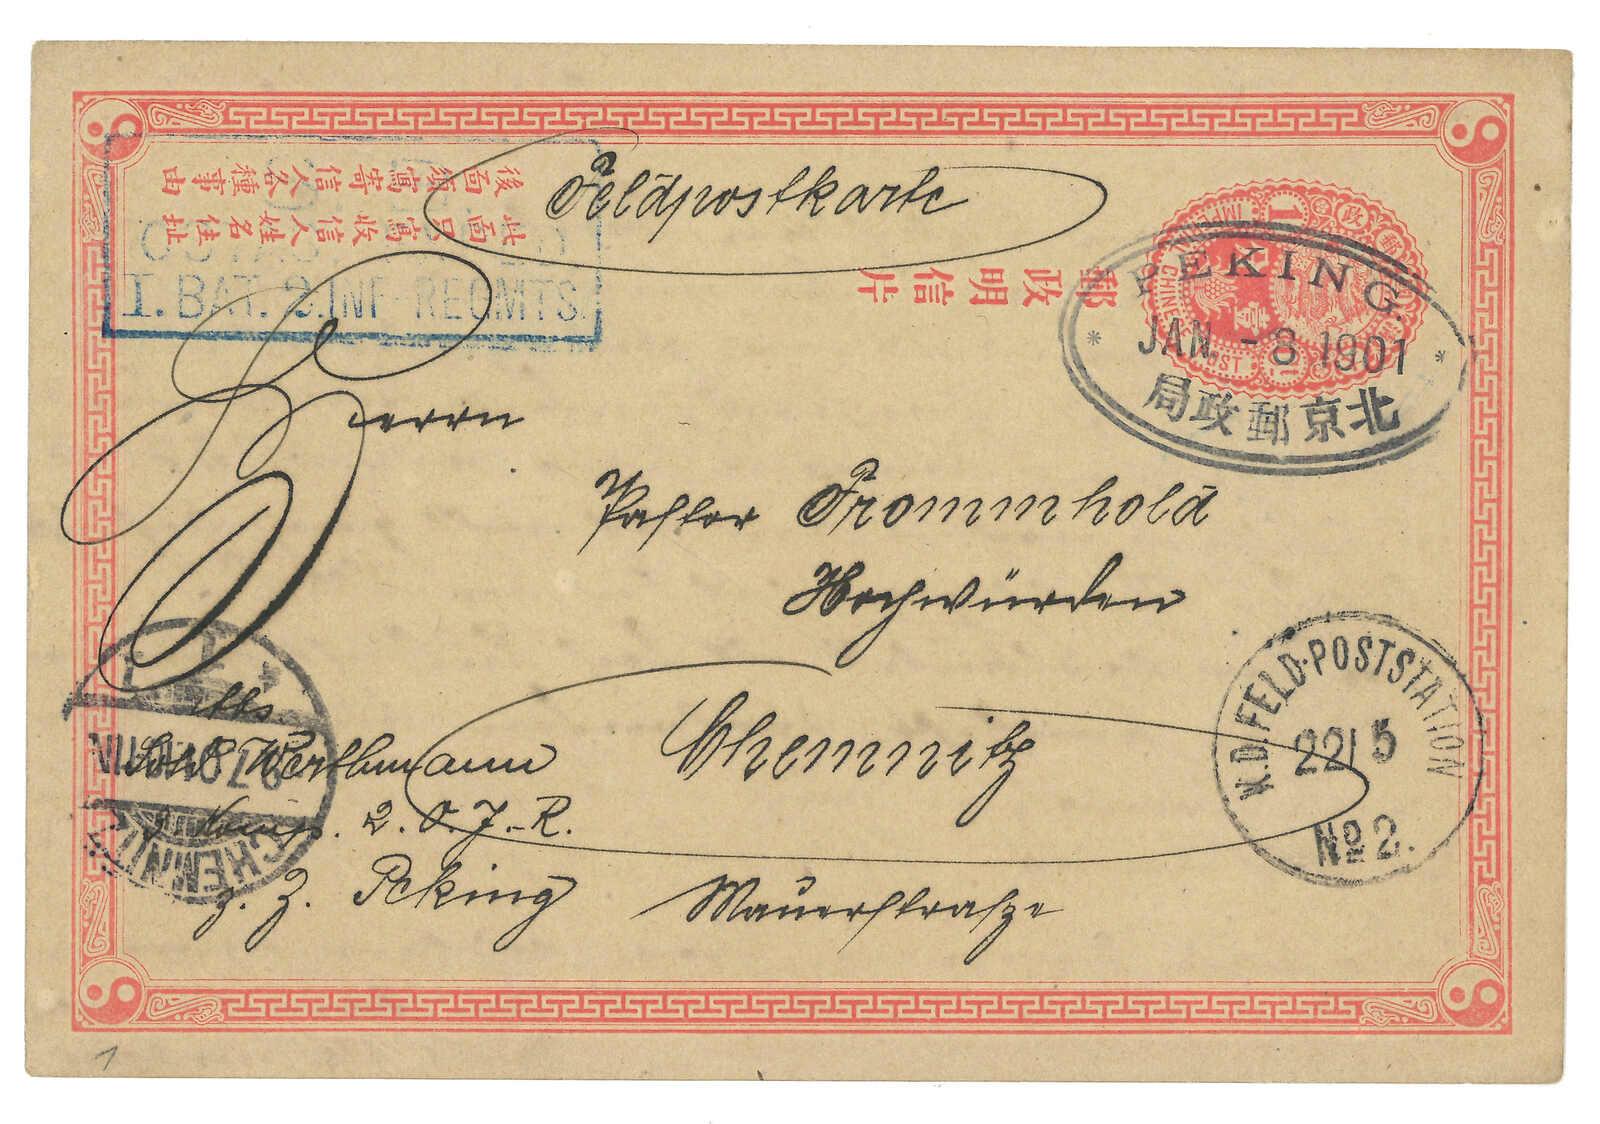 Feldpostkarte
後面須寫寄信人各種事由
此面只寫收信人姓名住址
I. BAT. 2. INF-REGMTS.
郵政明信片
PEKING.
JAN. -8 1901
北京郵政局
Herrn
Pastor Frommhold
Hochwürden
Chemnitz
Mauerstrasze
K.D. FELD-POSTSTATION
22/5
No 2.
CHEMNITZ
Abs.
Werthmann
2. O. J.-R.
z. Z. Peking
1